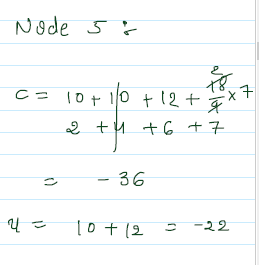 Node 5 :
2
C = 10 + 10 + 12 + 18/9 × 7
2 + 4 + 6 + 7
= - 36
y = 10 + 12 = -22